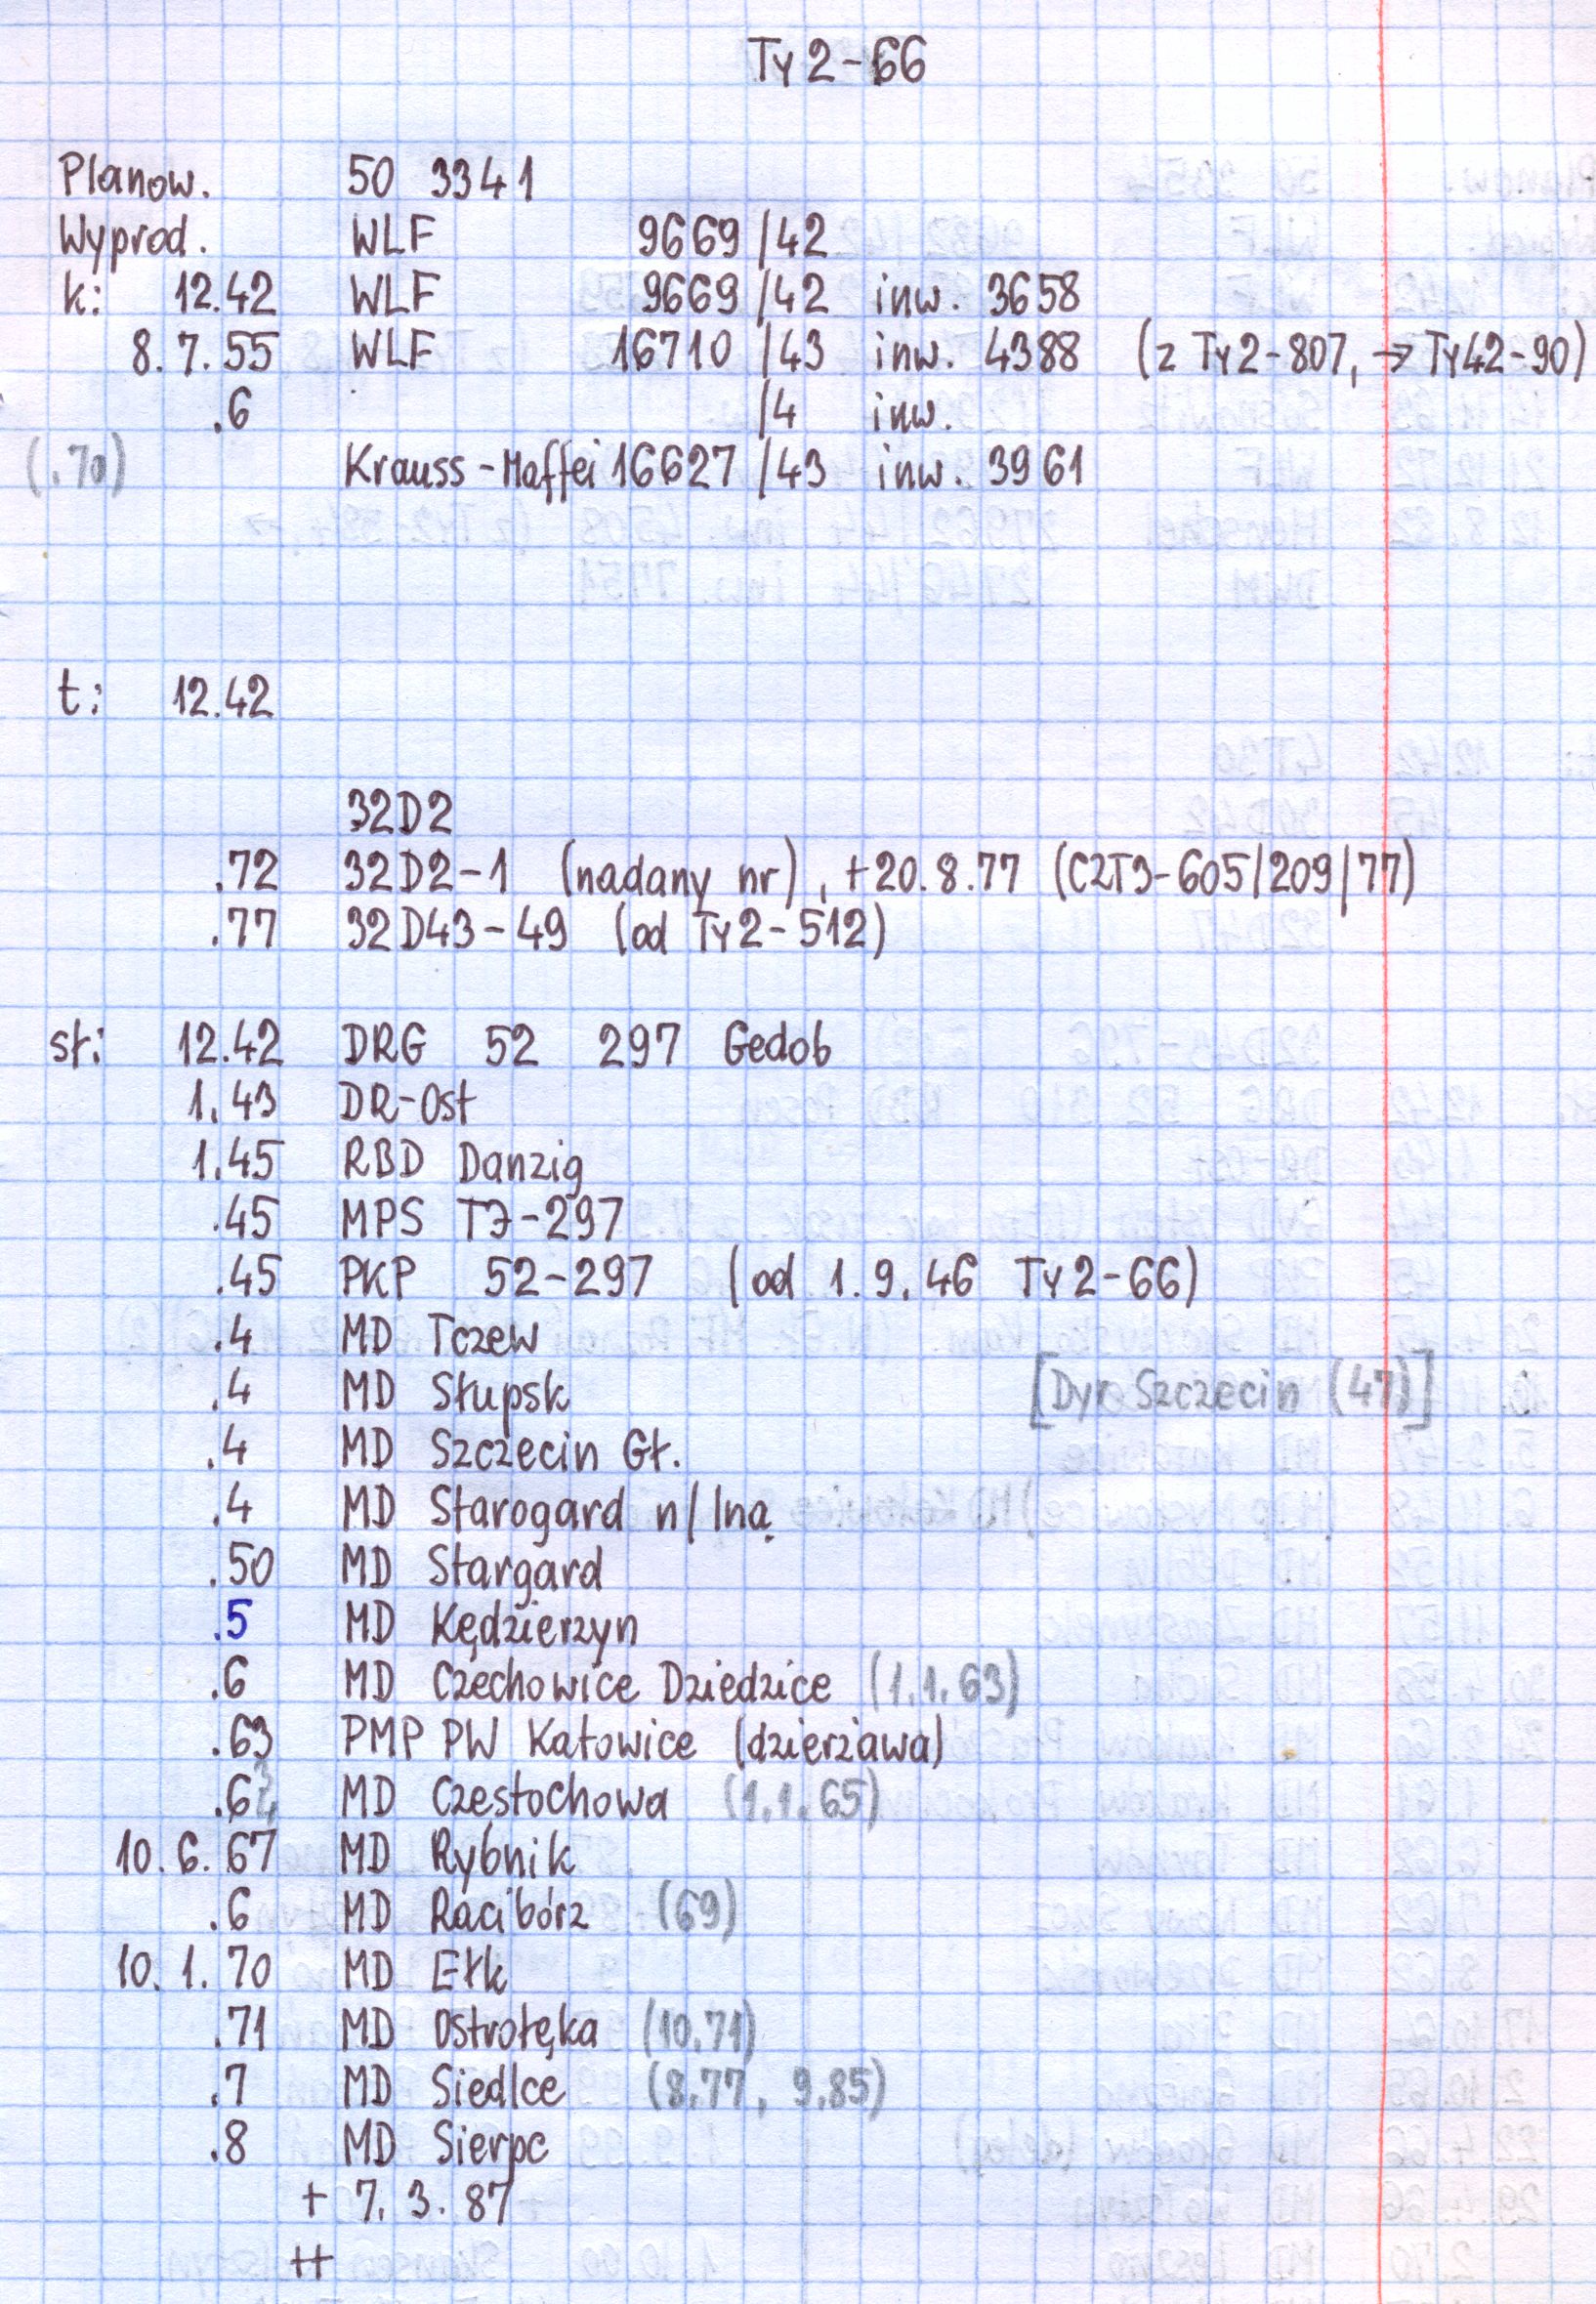 Ty2-66
Planow. 50 3341
Wyprod. WLF 9669/42
k: 12.42 WLF 9669/42 inw. 3658
8.7.55 WLF 16710/43 inw. 4388 (z Ty2-807, → Ty42-90)
.6 /4 inw.
(.70) Krauss-Maffei 16627/43 inw. 3961
t: 12.42
32D2
.72 32D2-1 (nadany nr), +20.8.77 (CZT3-605/209/77)
.77 32D43-49 (od Ty2-512)
st: 12.42 DRG 52 297 Gedob
1.43 DR-Ost
1.45 RBD Danzig
.45 MPS TЭ-297
.45 PKP 52-297 (od 1.9.46 Ty2-66)
.4 MD Tczew
.4 MD Słupsk [Dyr Szczecin (47)]
.4 MD Szczecin Gł.
.4 MD Starogard n/Iną
.50 MD Stargard
.5 MD Kędzierzyn
.6 MD Czechowice Dziedzice (1.1.63)
.63 PMP PW Katowice (dzierżawa)
.6 MD Częstochowa (1.1.65)
10.6.67 MD Rybnik
.6 MD Racibórz (69)
10.1.70 MD Ełk
.71 MD Ostrołęka (10.71)
.7 MD Siedlce (8.77, 9.85)
.8 MD Sierpc
+ 7.3.87
++